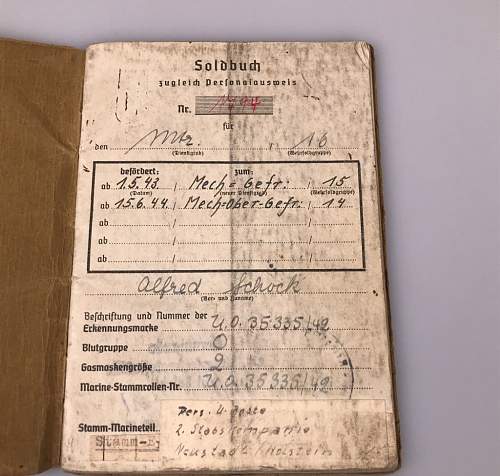 Soldbuch
zugleich Personalausweis
Nr. 1794
für
den Mtr. , 16
(Dienstgrad) (Wehrsoldgruppe)
befördert: zum:
ab 1.5.43. / Mech=Gefr: / 15
(Datum) (neuer Dienstgrad) (Wehrsoldgruppe)
ab 15.6.44. / Mech=Ober-Gefr: / 14
ab / /
ab / /
ab / /
Alfred Schock
(Vor- und Zuname)
Beschriftung und Nummer der
Erkennungsmarke U.O. 35335/42
Blutgruppe O
Gasmaskengröße 2
Marine-Stammrollen-Nr. U.O. 35335/42
Pers. U-Boote
Stamm-Marineteil 2. Stabskompanie
Stamm- Neustadt/Holstein